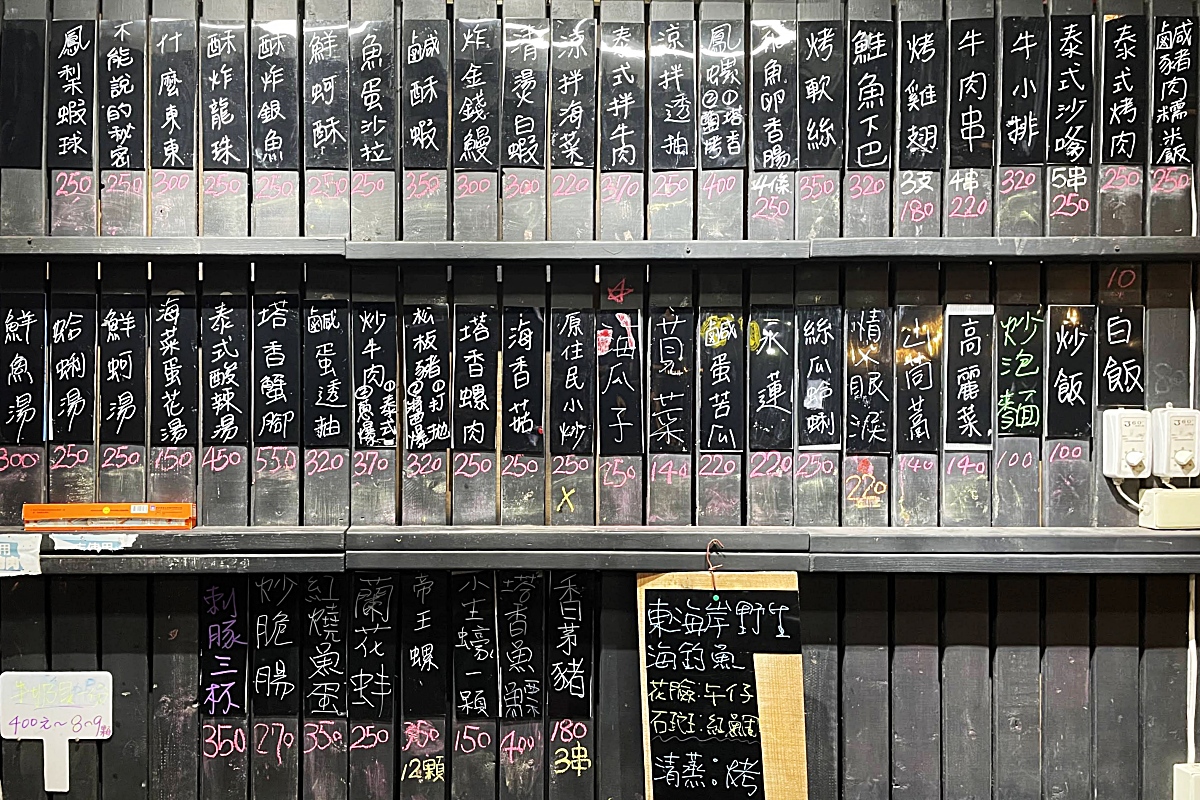 鳳梨蝦球 250
不能說的秘密 250
什麼東東 300
酥炸龍珠 250
酥炸銀魚 250
鮮蚵酥 250
魚蛋沙拉 250
鹹酥蝦 350
炸金錢鰻 300
清燙白蝦 300
涼拌海菜 220
泰式拌牛肉 370
涼拌透抽 250
鳳螺①塔香②蘭烤 400
飛魚卵香腸 4條 250
烤軟絲 350
鮭魚下巴 320
烤雞翅 3支 180
牛肉串 4串 220
牛小排 320
泰式沙嗲 5串 250
泰式烤肉 250
鹹豬肉糯米飯 250
鮮魚湯 300
蛤蜊湯 250
鮮蚵湯 250
海菜蛋花湯 150
泰式酸辣湯 450
塔香蟹腳 550
鹹蛋透抽 320
炒牛肉①泰式②蔥爆 370
松板豬①打拋②醬爆 320
塔香螺肉 250
海香菇 250
原住民小炒 250 X
海瓜子 250
莧菜 140
鹹蛋苦瓜 220
水蓮 220
絲瓜蛤蜊 250
情人眼淚 220
山茼蒿 140
高麗菜 140
炒泡麵 100
炒飯 100
白飯 10
刺豚三杯 350
炒脆腸 270
紅燒魚蛋 350
蘭花蚌 250
帝王螺 350 12顆
小生蠔一顆 150
塔香魚鰾 400
香茅豬 180 3串
400元~8~9顆
東海岸野生
海釣魚
花臉:午仔
石蛇:紅鯛
清蒸:烤